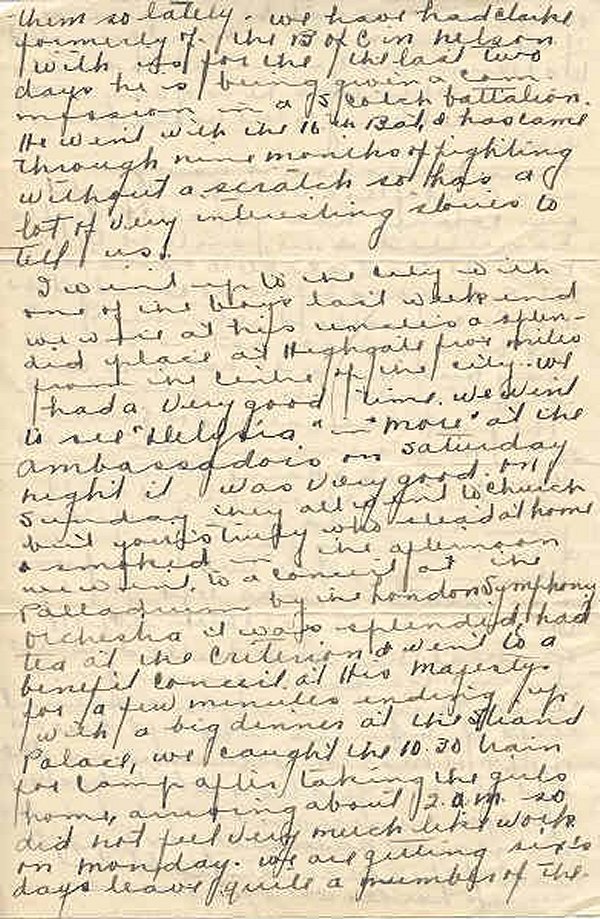 them so lately. we have had Clarke
formerly of the B of C in Nelson
with us for the the last two
days he is being given a com-
mission in a Scotch battalion.
He went with the 16th Bat, & has came
through nine months of fighting
without a scratch so has a
lot of very interesting stories to
tell us.
I went up to the city with
one of the boys last week end
we were at his uncles a splen-
did place at Highgate five miles
from the centre of the city. we
had a very good time. we went
to see "Delysia" in "More" at the
Ambassadors on Saturday
night it was very good. on
Sunday they all went to church
but yours truly who staid at home
& smoked in the afternoon
we went to a concert at the
Palladium by the London Symphony
Orchestra it was splendid, had
tea at the Criterion & went to a
benefit concert at His Majestys
for a few minutes ending up
with a big dinner at the Strand
Palace, we caught the 10.30 train
for camp after taking the girls
home, arriving about 12. a.m. so
did not feel very much like work
on monday. we are getting six
days leave quite a number of the